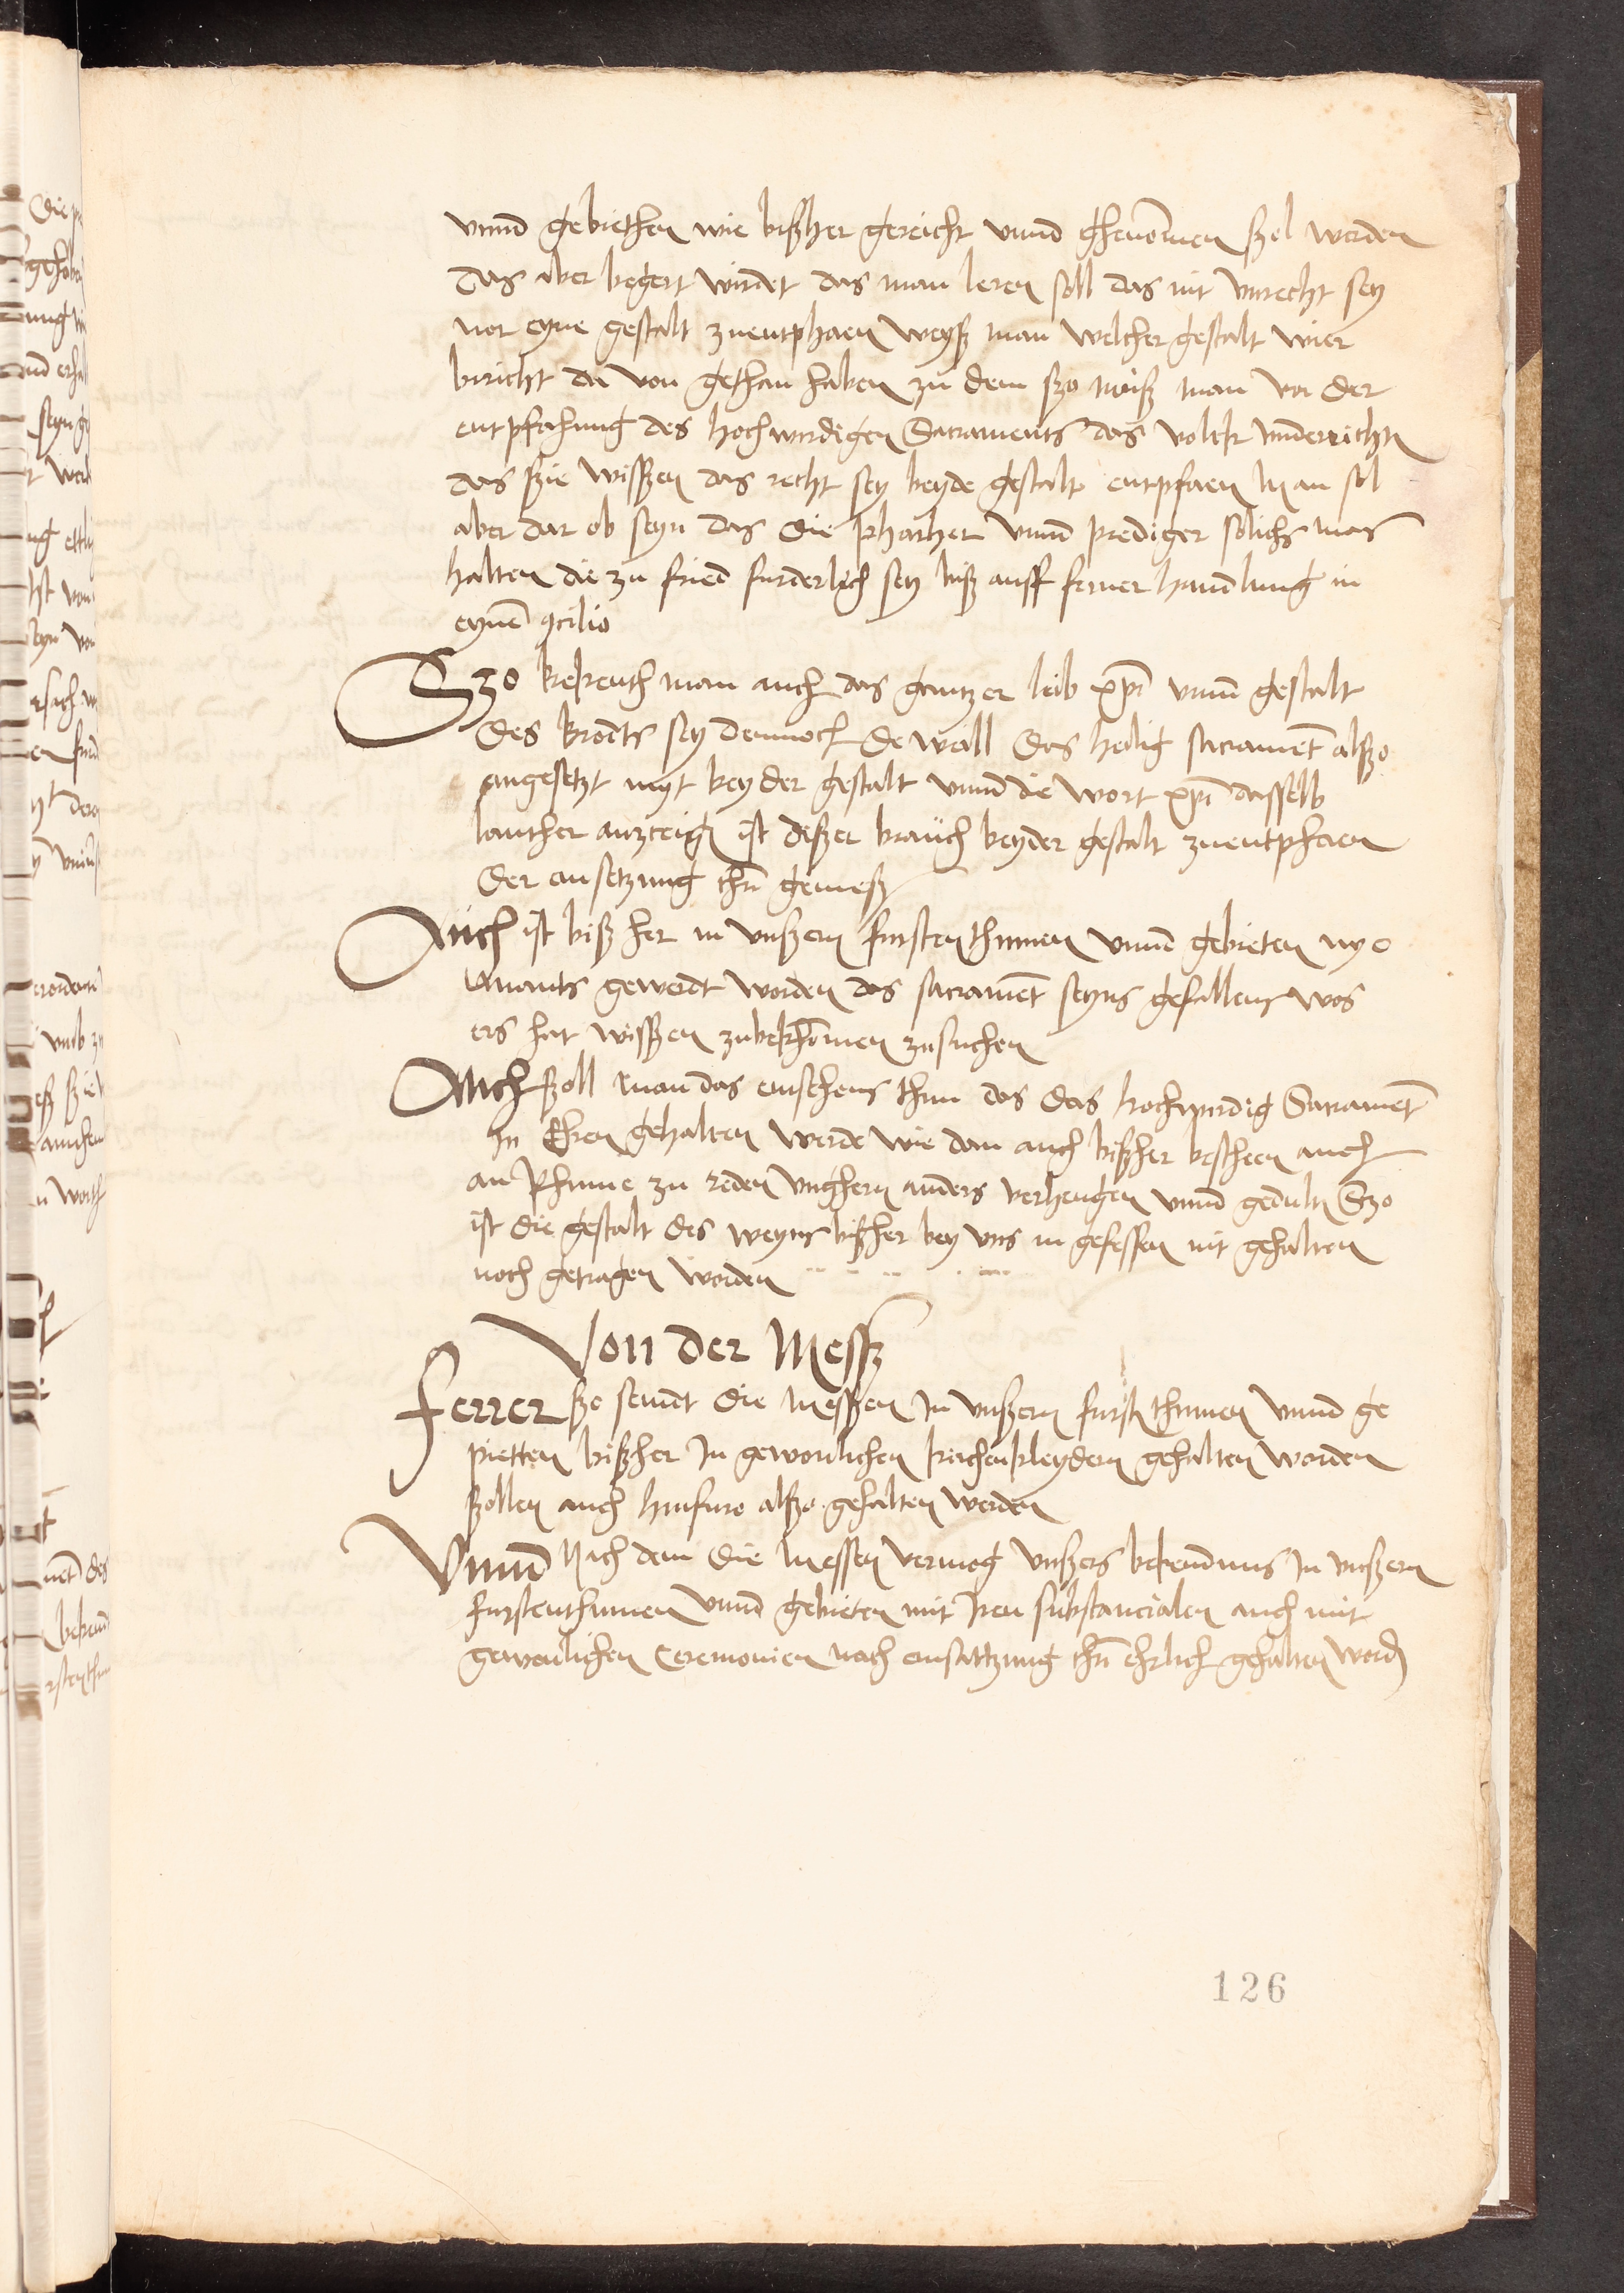 vnnd gebiethen wie bißher gereicht vnnd ghenōmen ßol werden
Das aber begert wirdet das man leren soll das nit vnrecht sey
nor eyne gestalt zuentphaen weyß man welcher gestalt wier
bericht da von gethan haben zu dem ßo muß man vor der
entpfahung des hochwirdigen Sacraments das volck vnderrichtn
das ßie wisßen das recht sey beyde gestalt entpfaen Man sol
aber dar ob seyn das die pharher vnnd prediger solichs mas
halten die zu fried furderlich sey biß auff ferner handlung in
eynē ꝯcilio
Szo bekenth man auch das gantzer leib xp̄i vnnd gestalt
des brodts sey dennoch de wall das heilig sacramēt alßo
angesetzt myt beyder gestalt vnnd die wort xp̄i dasselb
lauther anzceign ist dißer brauch beyder gestalt zuentphaen
der ansetzung chr̄i gemeß
Auch ist bißher in vnßern furstenthumen vnnd gebieten nye
mants geweert worden das sacramēt seyns gefallens wos
ers hat wisßen zubekhōmen zusuchen
Auch ßoll man das ansehens thun das das hochwirdig Sacramēt
In Ehren gehalten werde wie dan auch bißher bescheen auch
an Rhume zu reden vnghern anders verhengen vnnd gedultn Szo
ist die gestalt des weyns bißher bey vns in gefessen nit gehalten
noch getragen worden
Von der Messz
Ferrer ßo seindt die messzen In vnßern furstnthumen vnnd ge
pietten bißher In gewonlichen kirchenkleydern gehalten worden
ßollen auch hinfuro alßo gehalten werden
Vnnd Nach dem die messen vermog vnßers bekendtnus In vnßern
furstenthumen vnnd gebieten mit Iren substancialen auch mit
gewonlichen Ceremonien nach ansattzung chr̄i ehrlich gehalten wordn
126